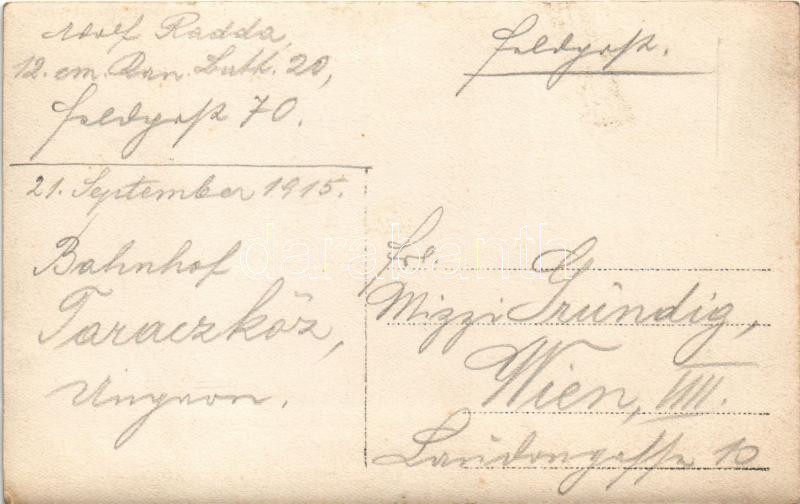 Adolf Radda,
12. cm. Kan. Batt. 20,
Feldpost 70.
Feldpost.
21. September 1915.
Bahnhof
Taraczköz,
Ungarn.
Frl.
Mizzi Gründig,
Wien, VIII.
Laudongasse 10
darabanth